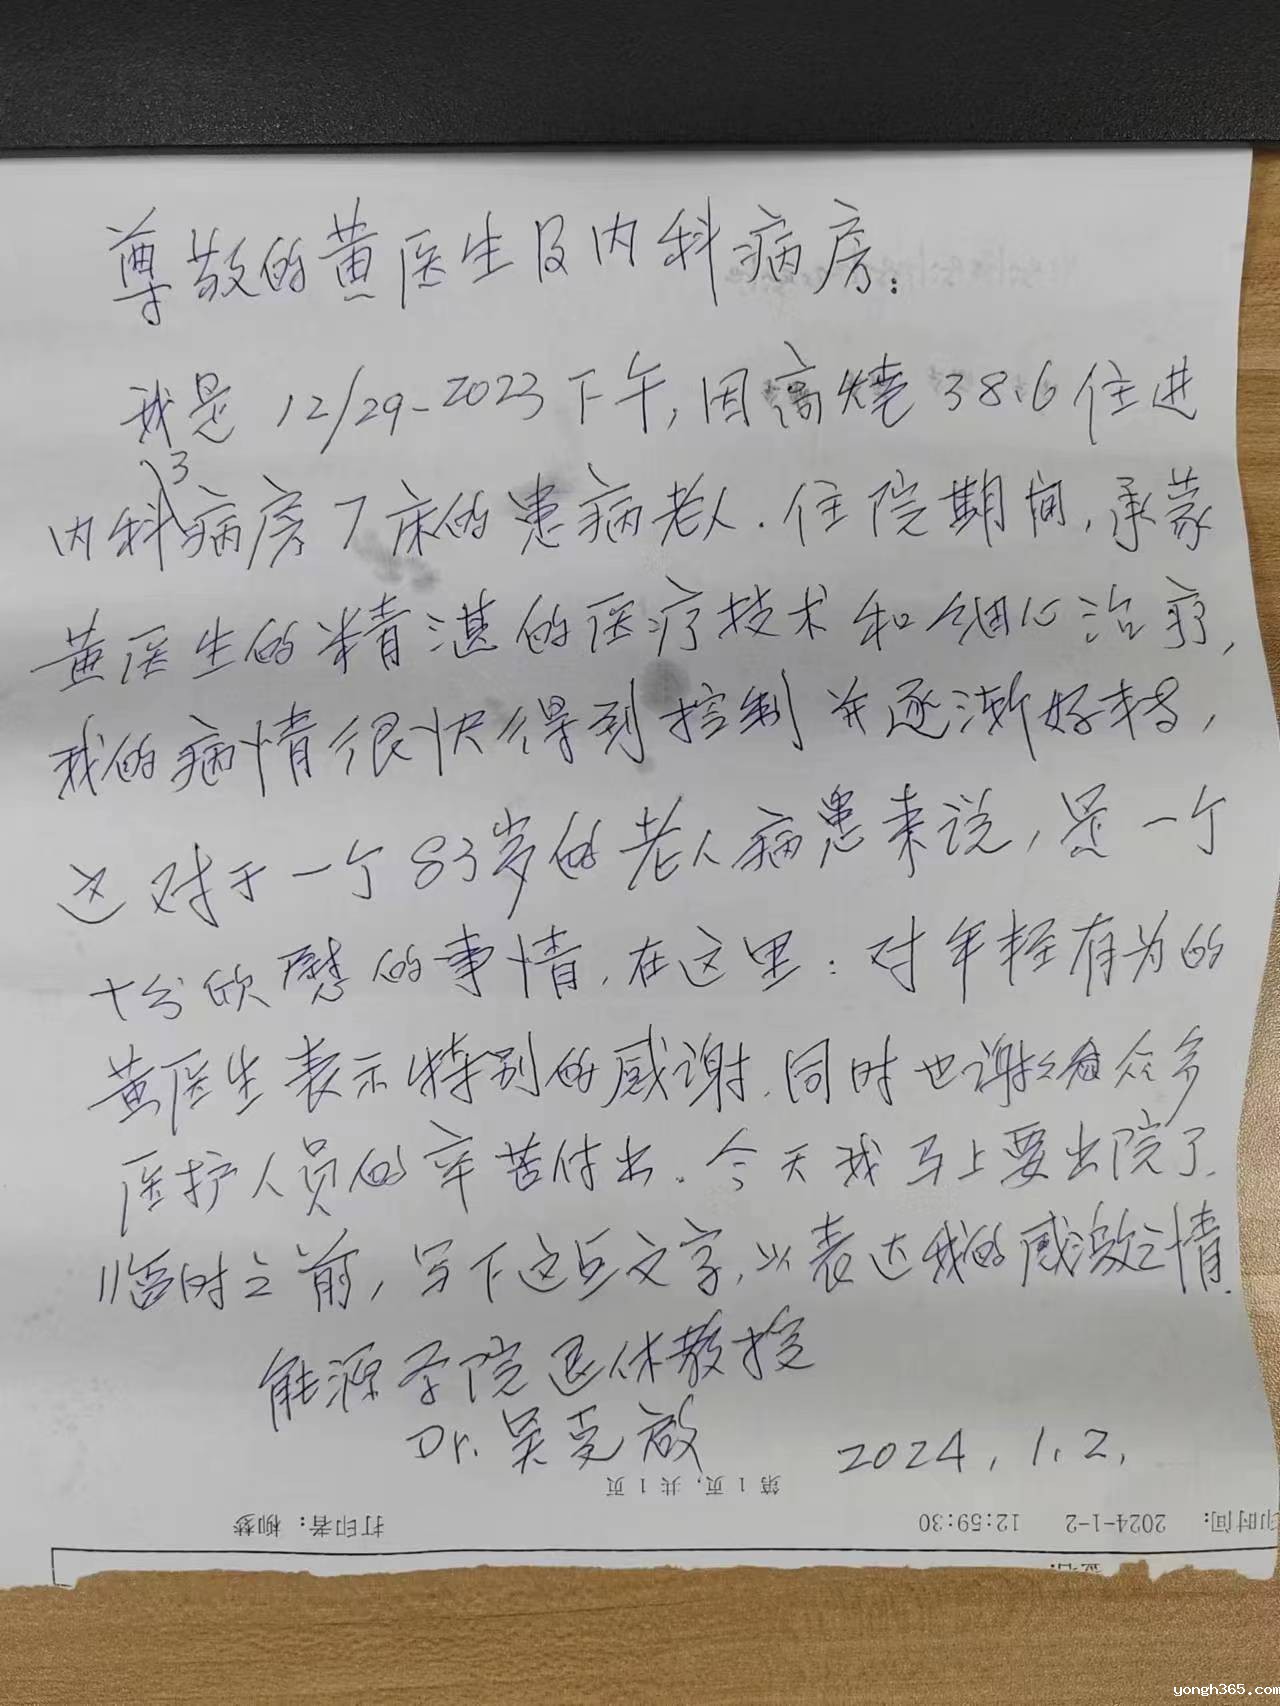 尊敬的黄医生及内科病房：
我是 12/29-2023下午，因高烧38.6住进
内科3病房7床的患病老人.住院期间,承蒙
黄医生的精湛的医疗技术和细心治疗,
我的病情很快得到控制并逐渐好转,
这对于一个83岁的老人病患来说,是一个
十分欣慰的事情.在这里：对年轻有为的
黄医生表示特别的感谢.同时也谢谢众多
医护人员的辛苦付出.今天我马上要出院了.
临时之前,写下这点文字,以表达我的感激之情.
能源学院退休教授
Dr.吴克啟 2024.1.2.
第 1 页, 共 1 页
印时间: 2024-1-2 12:59:30 打印者: 柳梦
yongh365.com